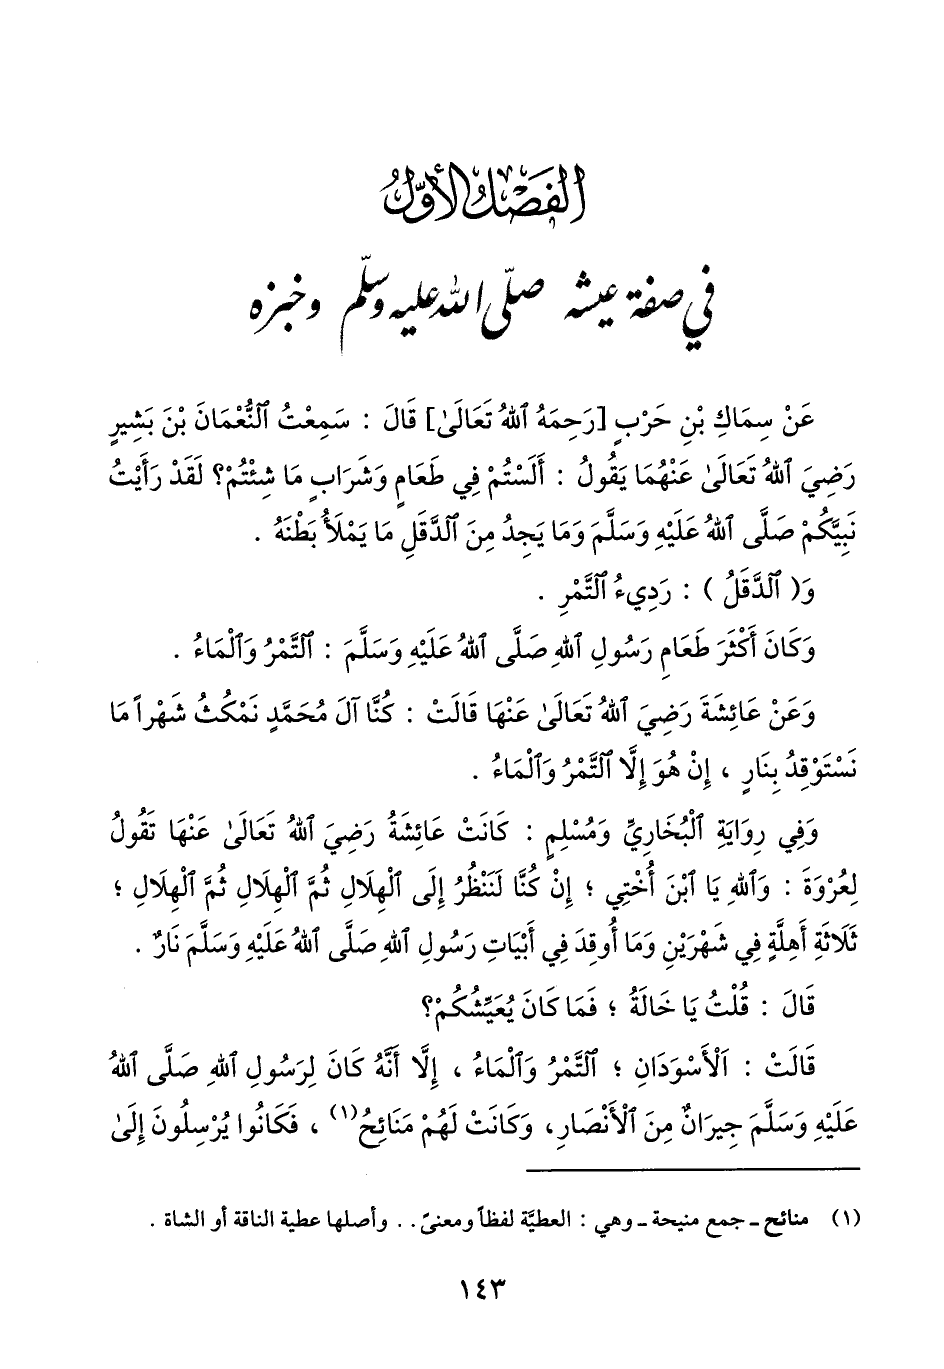 الفصل الأول
في صفة عيشه صلى الله عليه وسلم وخبزه
عَنْ سِمَاكِ بْنِ حَرْبٍ [رَحِمَهُ ٱللهُ تَعَالَىٰ] قَالَ : سَمِعْتُ ٱلنُّعْمَانَ بْنَ بَشِيرٍ
رَضِيَ ٱللهُ تَعَالَىٰ عَنْهُمَا يَقُولُ : أَلَسْتُمْ فِي طَعَامٍ وَشَرَابٍ مَا شِئْتُمْ؟ لَقَدْ رَأَيْتُ
نَبِيَّكُمْ صَلَّى ٱللهُ عَلَيْهِ وَسَلَّمَ وَمَا يَجِدُ مِنَ ٱلدَّقَلِ مَا يَمْلَأُ بَطْنَهُ .
وَ( ٱلدَّقَلُ ) : رَدِيءُ ٱلتَّمْرِ .
وَكَانَ أَكْثَرَ طَعَامِ رَسُولِ ٱللهِ صَلَّى ٱللهُ عَلَيْهِ وَسَلَّمَ : ٱلتَّمْرُ وَٱلْمَاءُ .
وَعَنْ عَائِشَةَ رَضِيَ ٱللهُ تَعَالَىٰ عَنْهَا قَالَتْ : كُنَّا آلَ مُحَمَّدٍ نَمْكُثُ شَهْراً مَا
نَسْتَوْقِدُ بِنَارٍ ، إِنْ هُوَ إِلَّا ٱلتَّمْرُ وَٱلْمَاءُ .
وَفِي رِوَايَةِ ٱلْبُخَارِيِّ وَمُسْلِمٍ : كَانَتْ عَائِشَةُ رَضِيَ ٱللهُ تَعَالَىٰ عَنْهَا تَقُولُ
لِعُرْوَةَ : وَٱللهِ يَا ٱبْنَ أُخْتِي ؛ إِنْ كُنَّا لَنَنْظُرُ إِلَى ٱلْهِلَالِ ثُمَّ ٱلْهِلَالِ ثُمَّ ٱلْهِلَالِ ؛
ثَلَاثَةِ أَهِلَّةٍ فِي شَهْرَيْنِ وَمَا أُوقِدَ فِي أَبْيَاتِ رَسُولِ ٱللهِ صَلَّى ٱللهُ عَلَيْهِ وَسَلَّمَ نَارٌ .
قَالَ : قُلْتُ يَا خَالَةُ ؛ فَمَا كَانَ يُعَيِّشُكُمْ؟
قَالَتْ : اَلْأَسْوَدَانِ ؛ ٱلتَّمْرُ وَٱلْمَاءُ ، إِلَّا أَنَّهُ كَانَ لِرَسُولِ ٱللهِ صَلَّى ٱللهُ
عَلَيْهِ وَسَلَّمَ جِيرَانٌ مِنَ ٱلْأَنْصَارِ، وَكَانَتْ لَهُمْ مَنَائِحُ(١) ، فَكَانُوا يُرْسِلُونَ إِلَىٰ
(١) منائح - جمع منيحة - وهي : العطيَّة لفظاً ومعنىً . . وأصلها عطية الناقة أو الشاة .
١٤٣